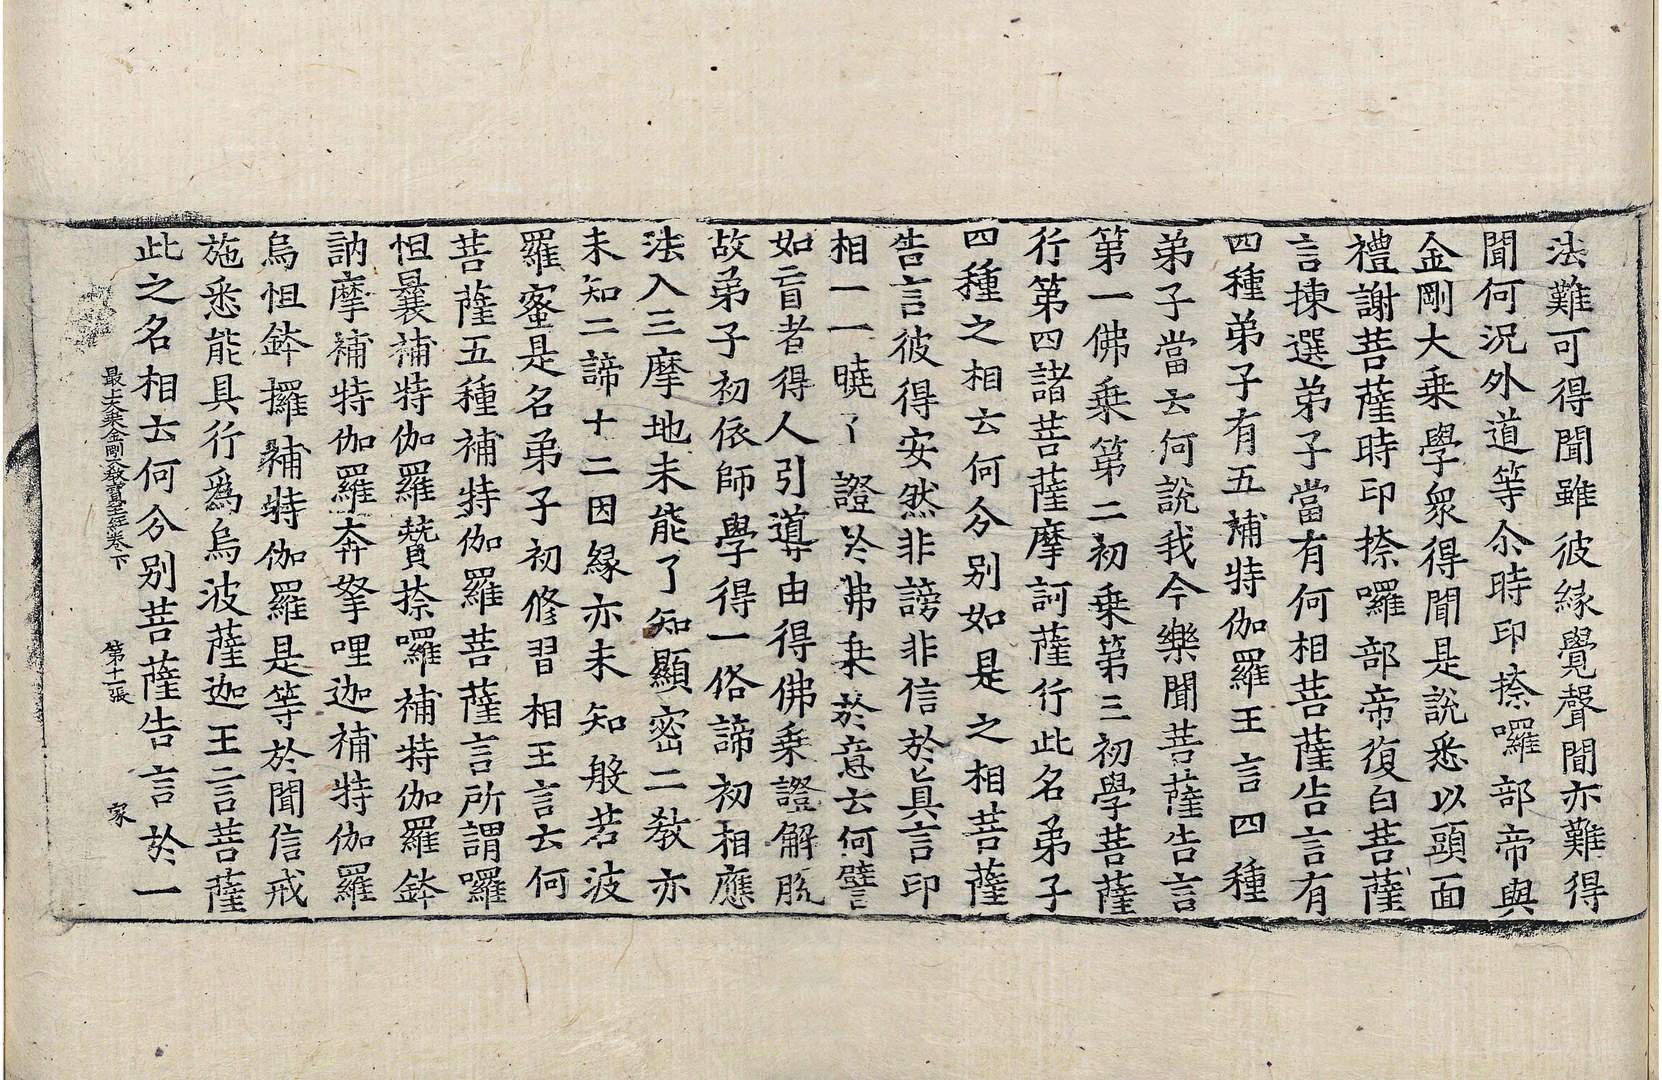 法難可得聞雖彼緣覺聲聞亦難得
聞何況外道等尒時印捺囉部帝與
金剛大乘學衆得聞是說悉以頭面
禮謝菩薩時印捺囉部帝復白菩薩
言揀選弟子當有何相菩薩告言有
四種弟子有五補特伽羅王言四種
弟子當云何說我今樂聞菩薩告言
第一佛乘第二初乘第三初學菩薩
行第四諸菩薩摩訶薩行此名弟子
四種之相云何分別如是之相菩薩
告言彼得安然非謗非信於真言印
相一一曉了證於佛乘於意云何譬
如盲者得人引導由得佛乘證解脫
故弟子初依師學得一俗諦初相應
法入三摩地未能了知顯密二教亦
未知二諦十二因緣亦未知般若波
羅蜜是名弟子初修習相王言云何
菩薩五種補特伽羅菩薩言所謂囉
怛曩補特伽羅贊捺囉補特伽羅鉢
訥摩補特伽羅奔拏哩迦補特伽羅
烏怛鉢攞補特伽羅是等於聞信戒
施悉能具行爲烏波薩迦王言菩薩
此之名相云何分別菩薩告言於一
最上大乘金剛大教寶王經卷下 第十一張 家